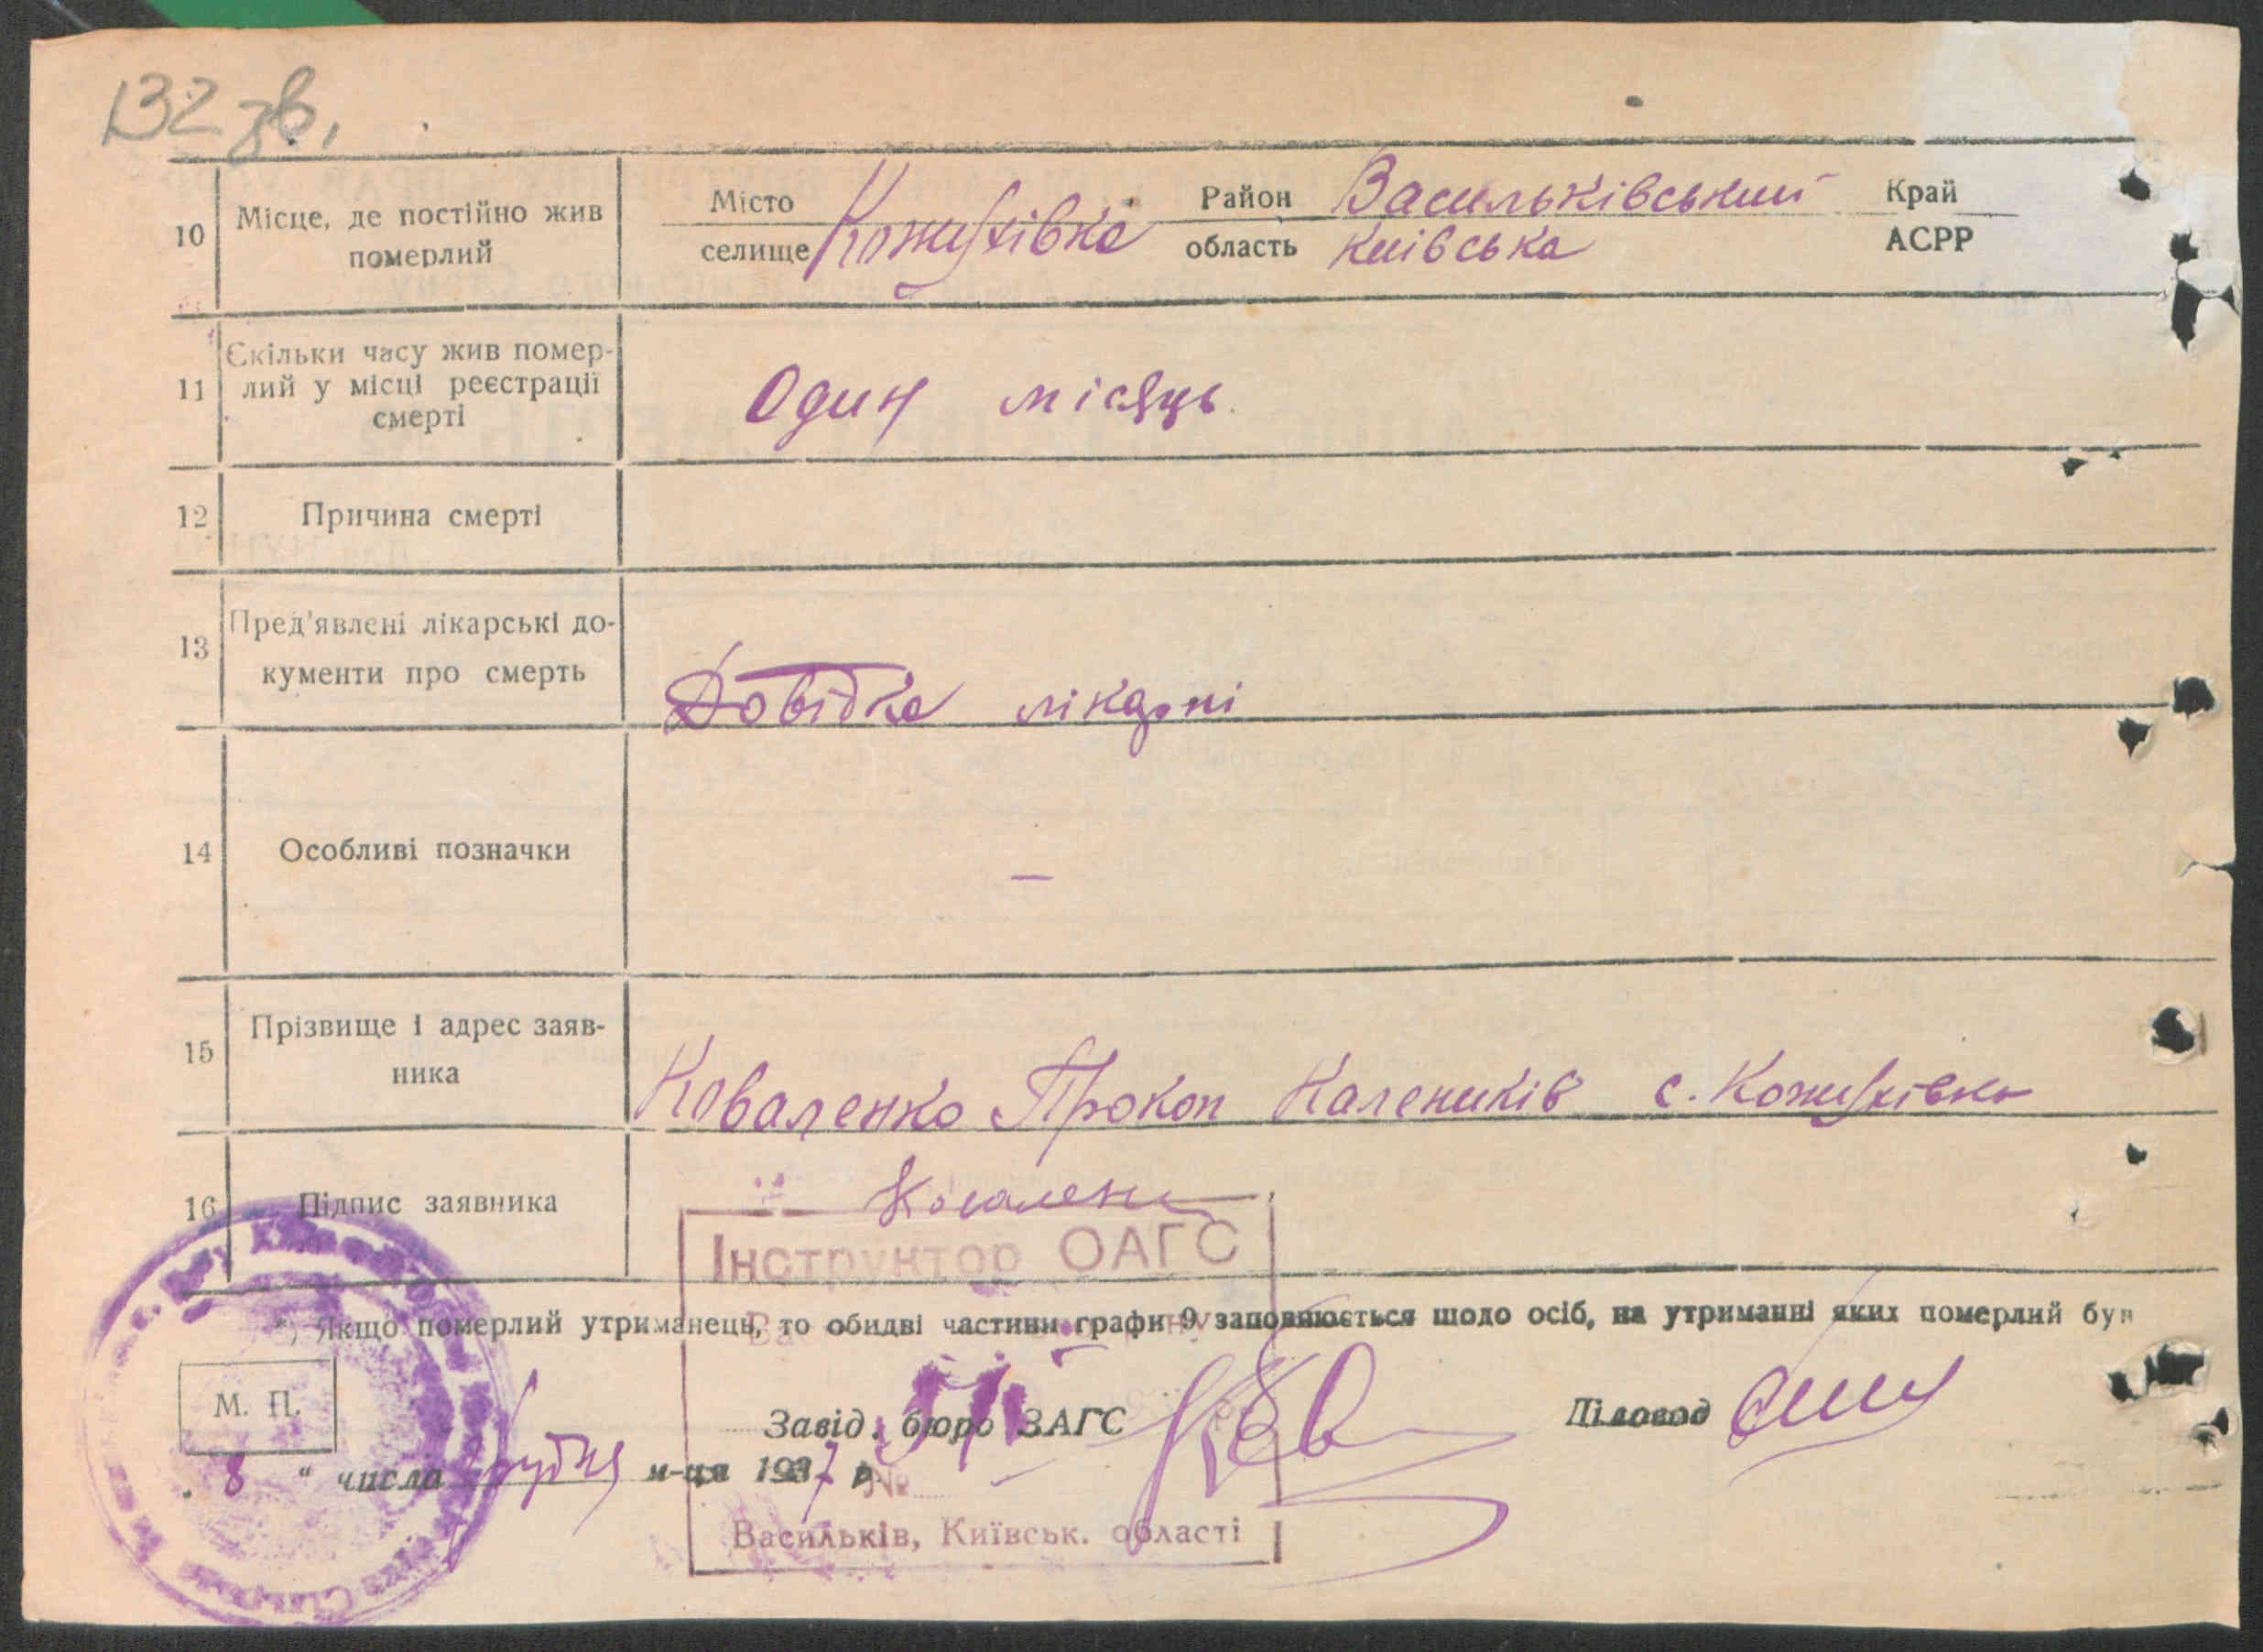 132 зв.
10 Місце, де постійно жив померлий
Місто
селище Кожухівка
Район Васильківський
область Київська
Край
АСРР
11 Скільки часу жив помер-
лий у місці реєстрації
смерті
Один місяць.
12 Причина смерті
13 Пред'явлені лікарські до-
кументи про смерть
Довідка лікарні
14 Особливі позначки
—
15 Прізвище і адрес заяв-
ника
Коваленко Прокоп Калеників с. Кожухівка
16 Підпис заявника
Інструктор ОАГС
*) Якщо померлий утриманець, то обидві частини графи 9 заповнюється щодо осіб, на утриманні яких померлий був
М. П.
Завід. бюро ЗАГС
Діловод
„ 8 " числа грудня м-ця 1937 р.
№
Васильків, Київськ. області